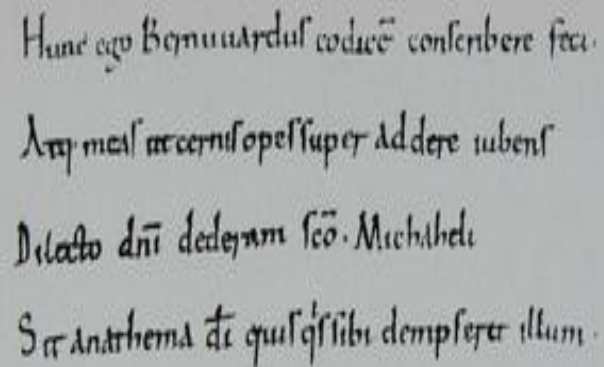 Hunc ego Bernuuardus codicē conscribere feci.
Atq; meas ut cernis opes super addere iubens
Dilecto dn̄i dederam sc̄o. Michaheli
Sit anathema dī quisq́s sibi dempserit illum.